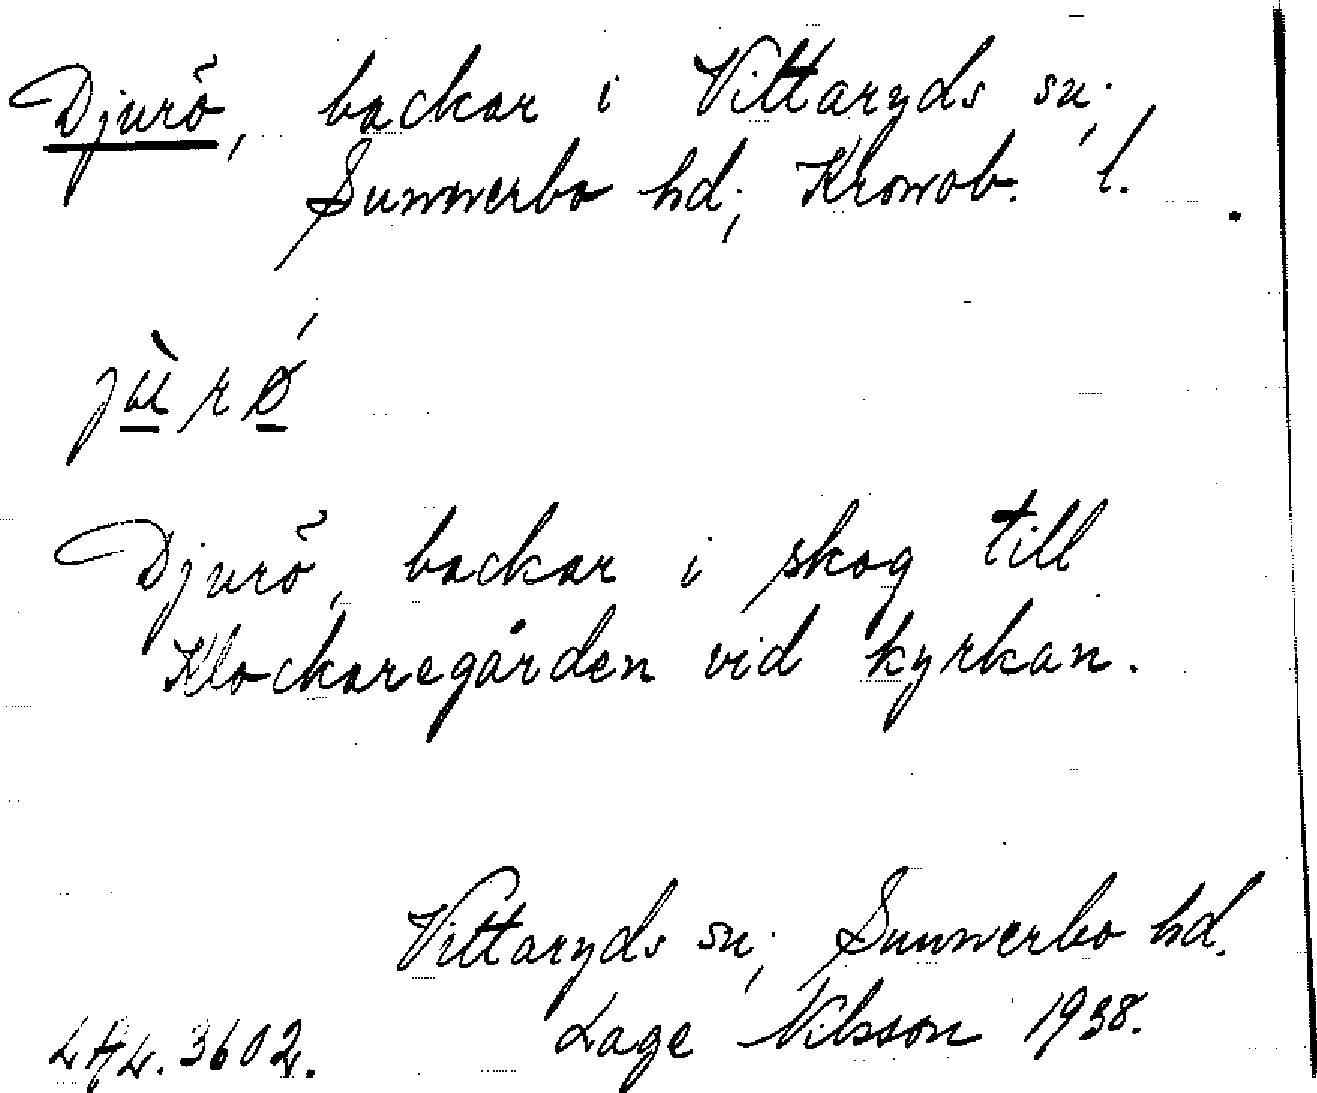 Djurö, backar i Vittaryds sn;
Sunnerbo hd; Kronob. l.
jùrǿ
Djurö, backar i skog till
Klockaregården vid kyrkan.
Vittaryds sn; Sunnerbo hd.
Lage Nilsson 1938.
3602.